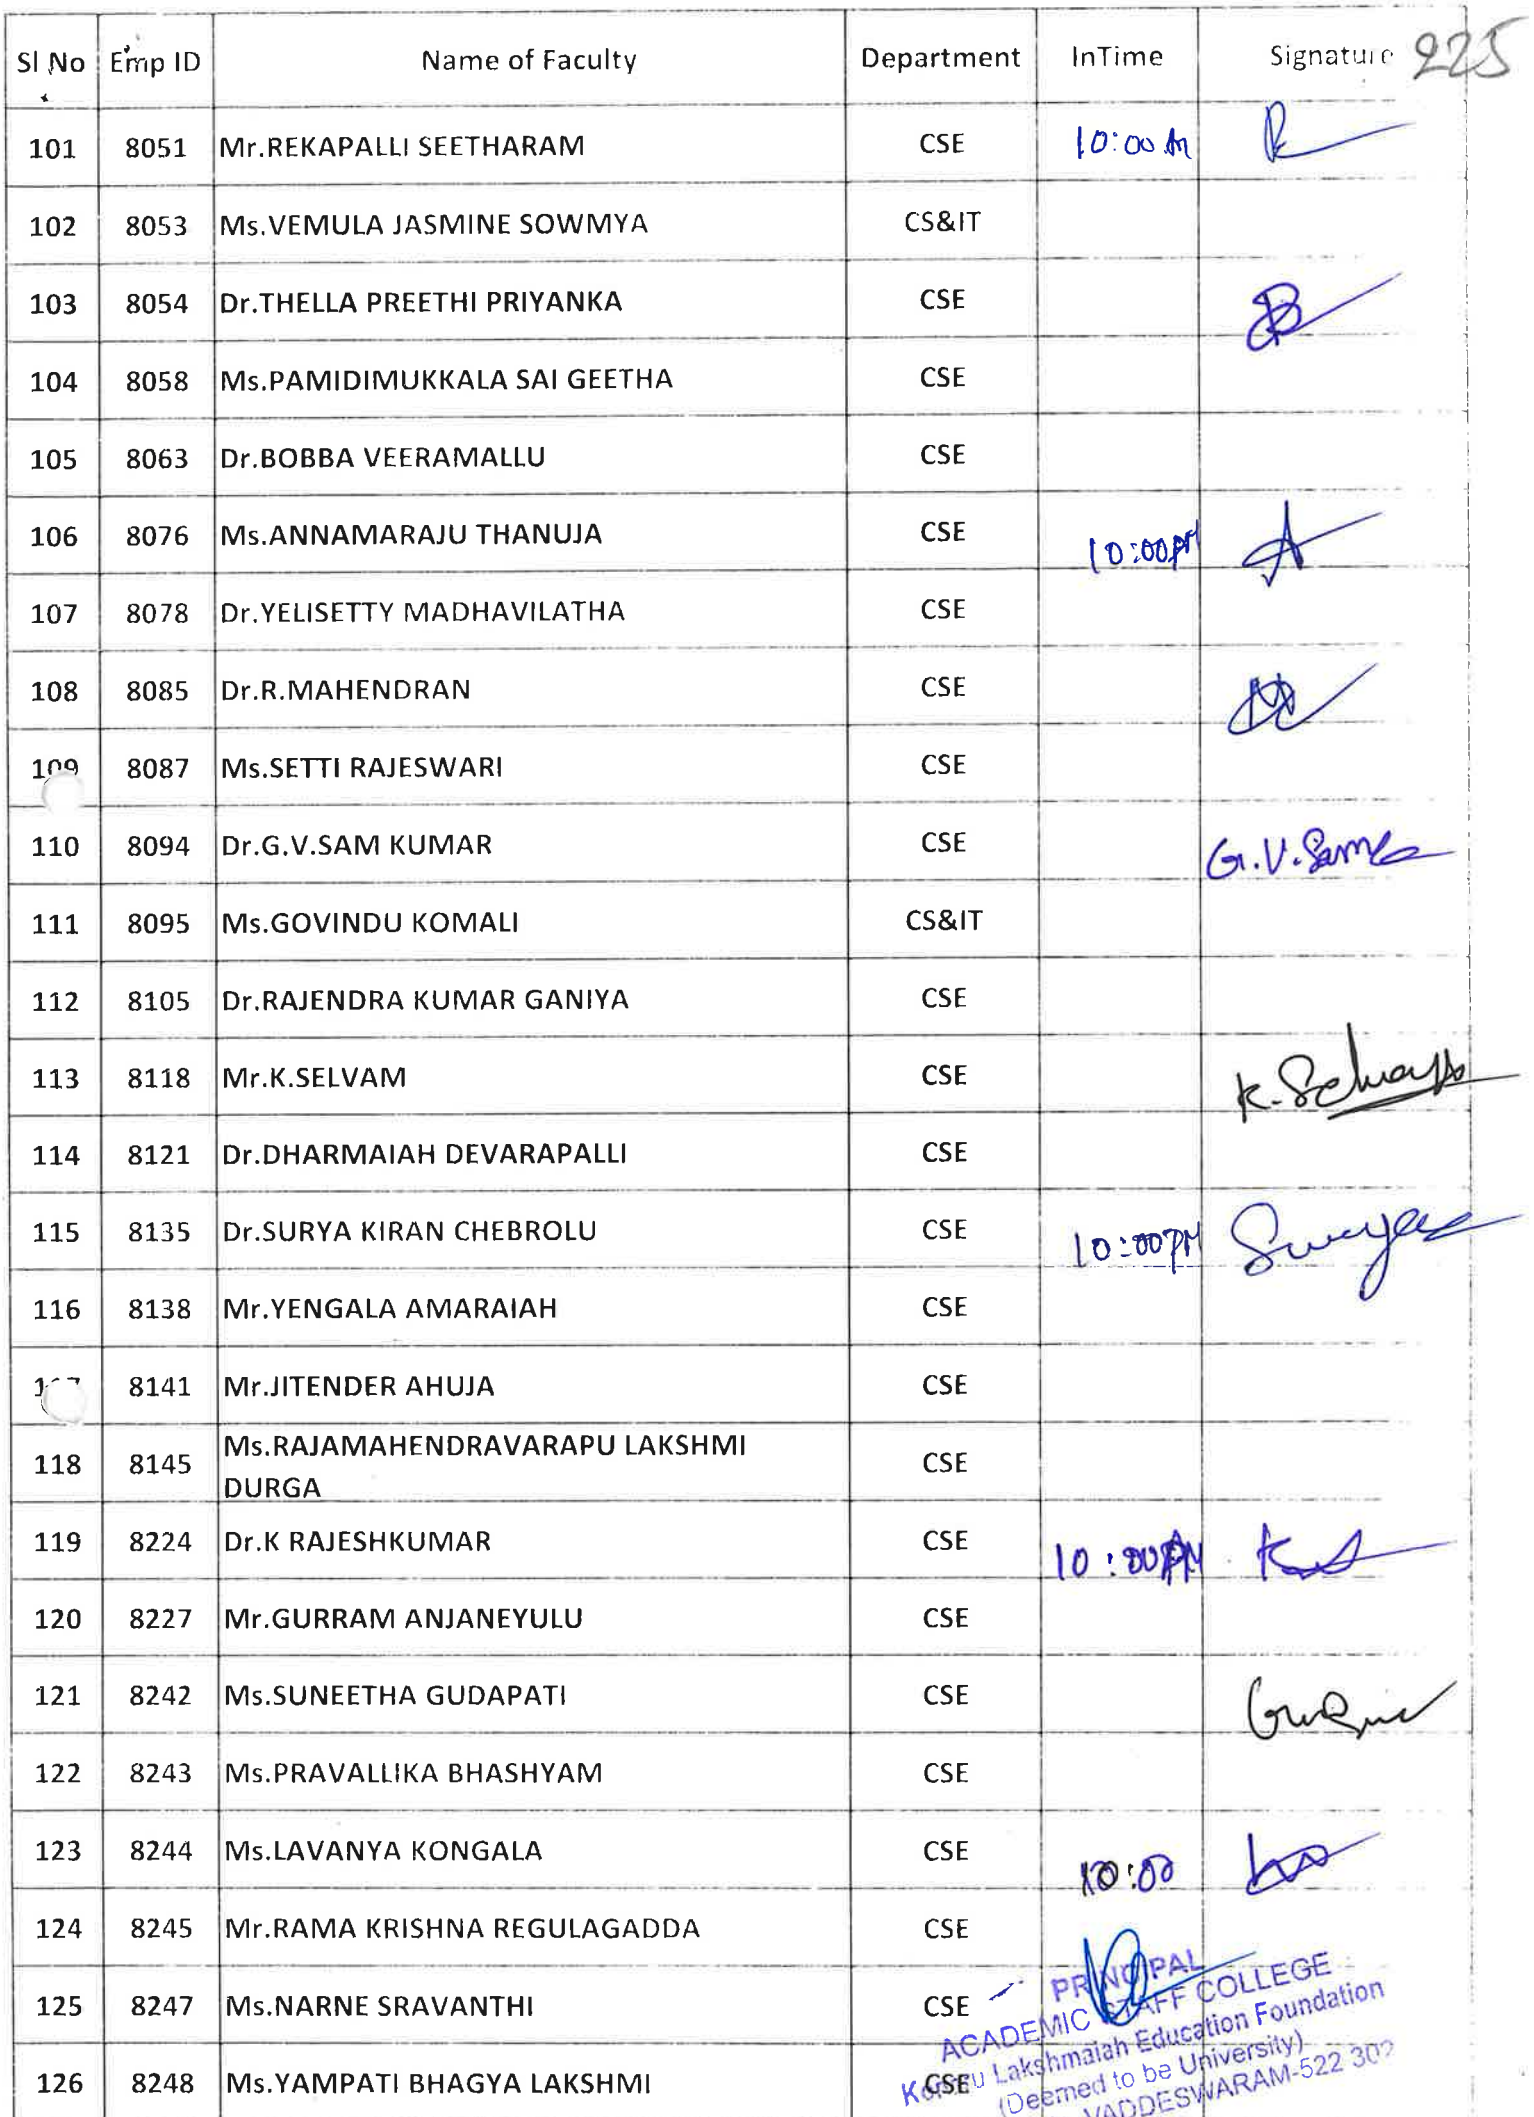 225
Sl No Emp ID Name of Faculty Department InTime Signature
101 8051 Mr.REKAPALLI SEETHARAM CSE 10:00 AM
102 8053 Ms.VEMULA JASMINE SOWMYA CS&IT
103 8054 Dr.THELLA PREETHI PRIYANKA CSE
104 8058 Ms.PAMIDIMUKKALA SAI GEETHA CSE
105 8063 Dr.BOBBA VEERAMALLU CSE
106 8076 Ms.ANNAMARAJU THANUJA CSE 10:00
107 8078 Dr.YELISETTY MADHAVILATHA CSE
108 8085 Dr.R.MAHENDRAN CSE
109 8087 Ms.SETTI RAJESWARI CSE
110 8094 Dr.G.V.SAM KUMAR CSE G.V.Sam
111 8095 Ms.GOVINDU KOMALI CS&IT
112 8105 Dr.RAJENDRA KUMAR GANIYA CSE
113 8118 Mr.K.SELVAM CSE K.Selvam
114 8121 Dr.DHARMAIAH DEVARAPALLI CSE
115 8135 Dr.SURYA KIRAN CHEBROLU CSE 10:00PM Surya
116 8138 Mr.YENGALA AMARAIAH CSE
8141 Mr.JITENDER AHUJA CSE
118 8145 Ms.RAJAMAHENDRAVARAPU LAKSHMI
DURGA CSE
119 8224 Dr.K RAJESHKUMAR CSE 10:00
120 8227 Mr.GURRAM ANJANEYULU CSE
121 8242 Ms.SUNEETHA GUDAPATI CSE
122 8243 Ms.PRAVALLIKA BHASHYAM CSE
123 8244 Ms.LAVANYA KONGALA CSE 10:00
124 8245 Mr.RAMA KRISHNA REGULAGADDA CSE
125 8247 Ms.NARNE SRAVANTHI CSE
126 8248 Ms.YAMPATI BHAGYA LAKSHMI CSE
PRINCIPAL
ACADEMIC STAFF COLLEGE
Koneru Lakshmaiah Education Foundation
(Deemed to be University)
VADDESWARAM-522 302